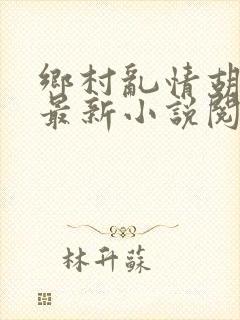 鄉村亂情胡
最新小說閱
林升蘇